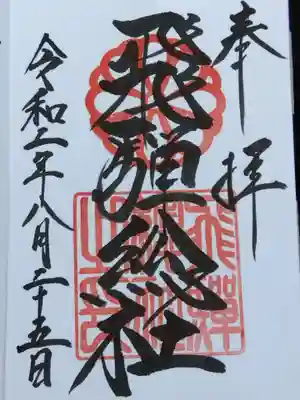 奉拝
飛騨総社
令和二年八月二十五日